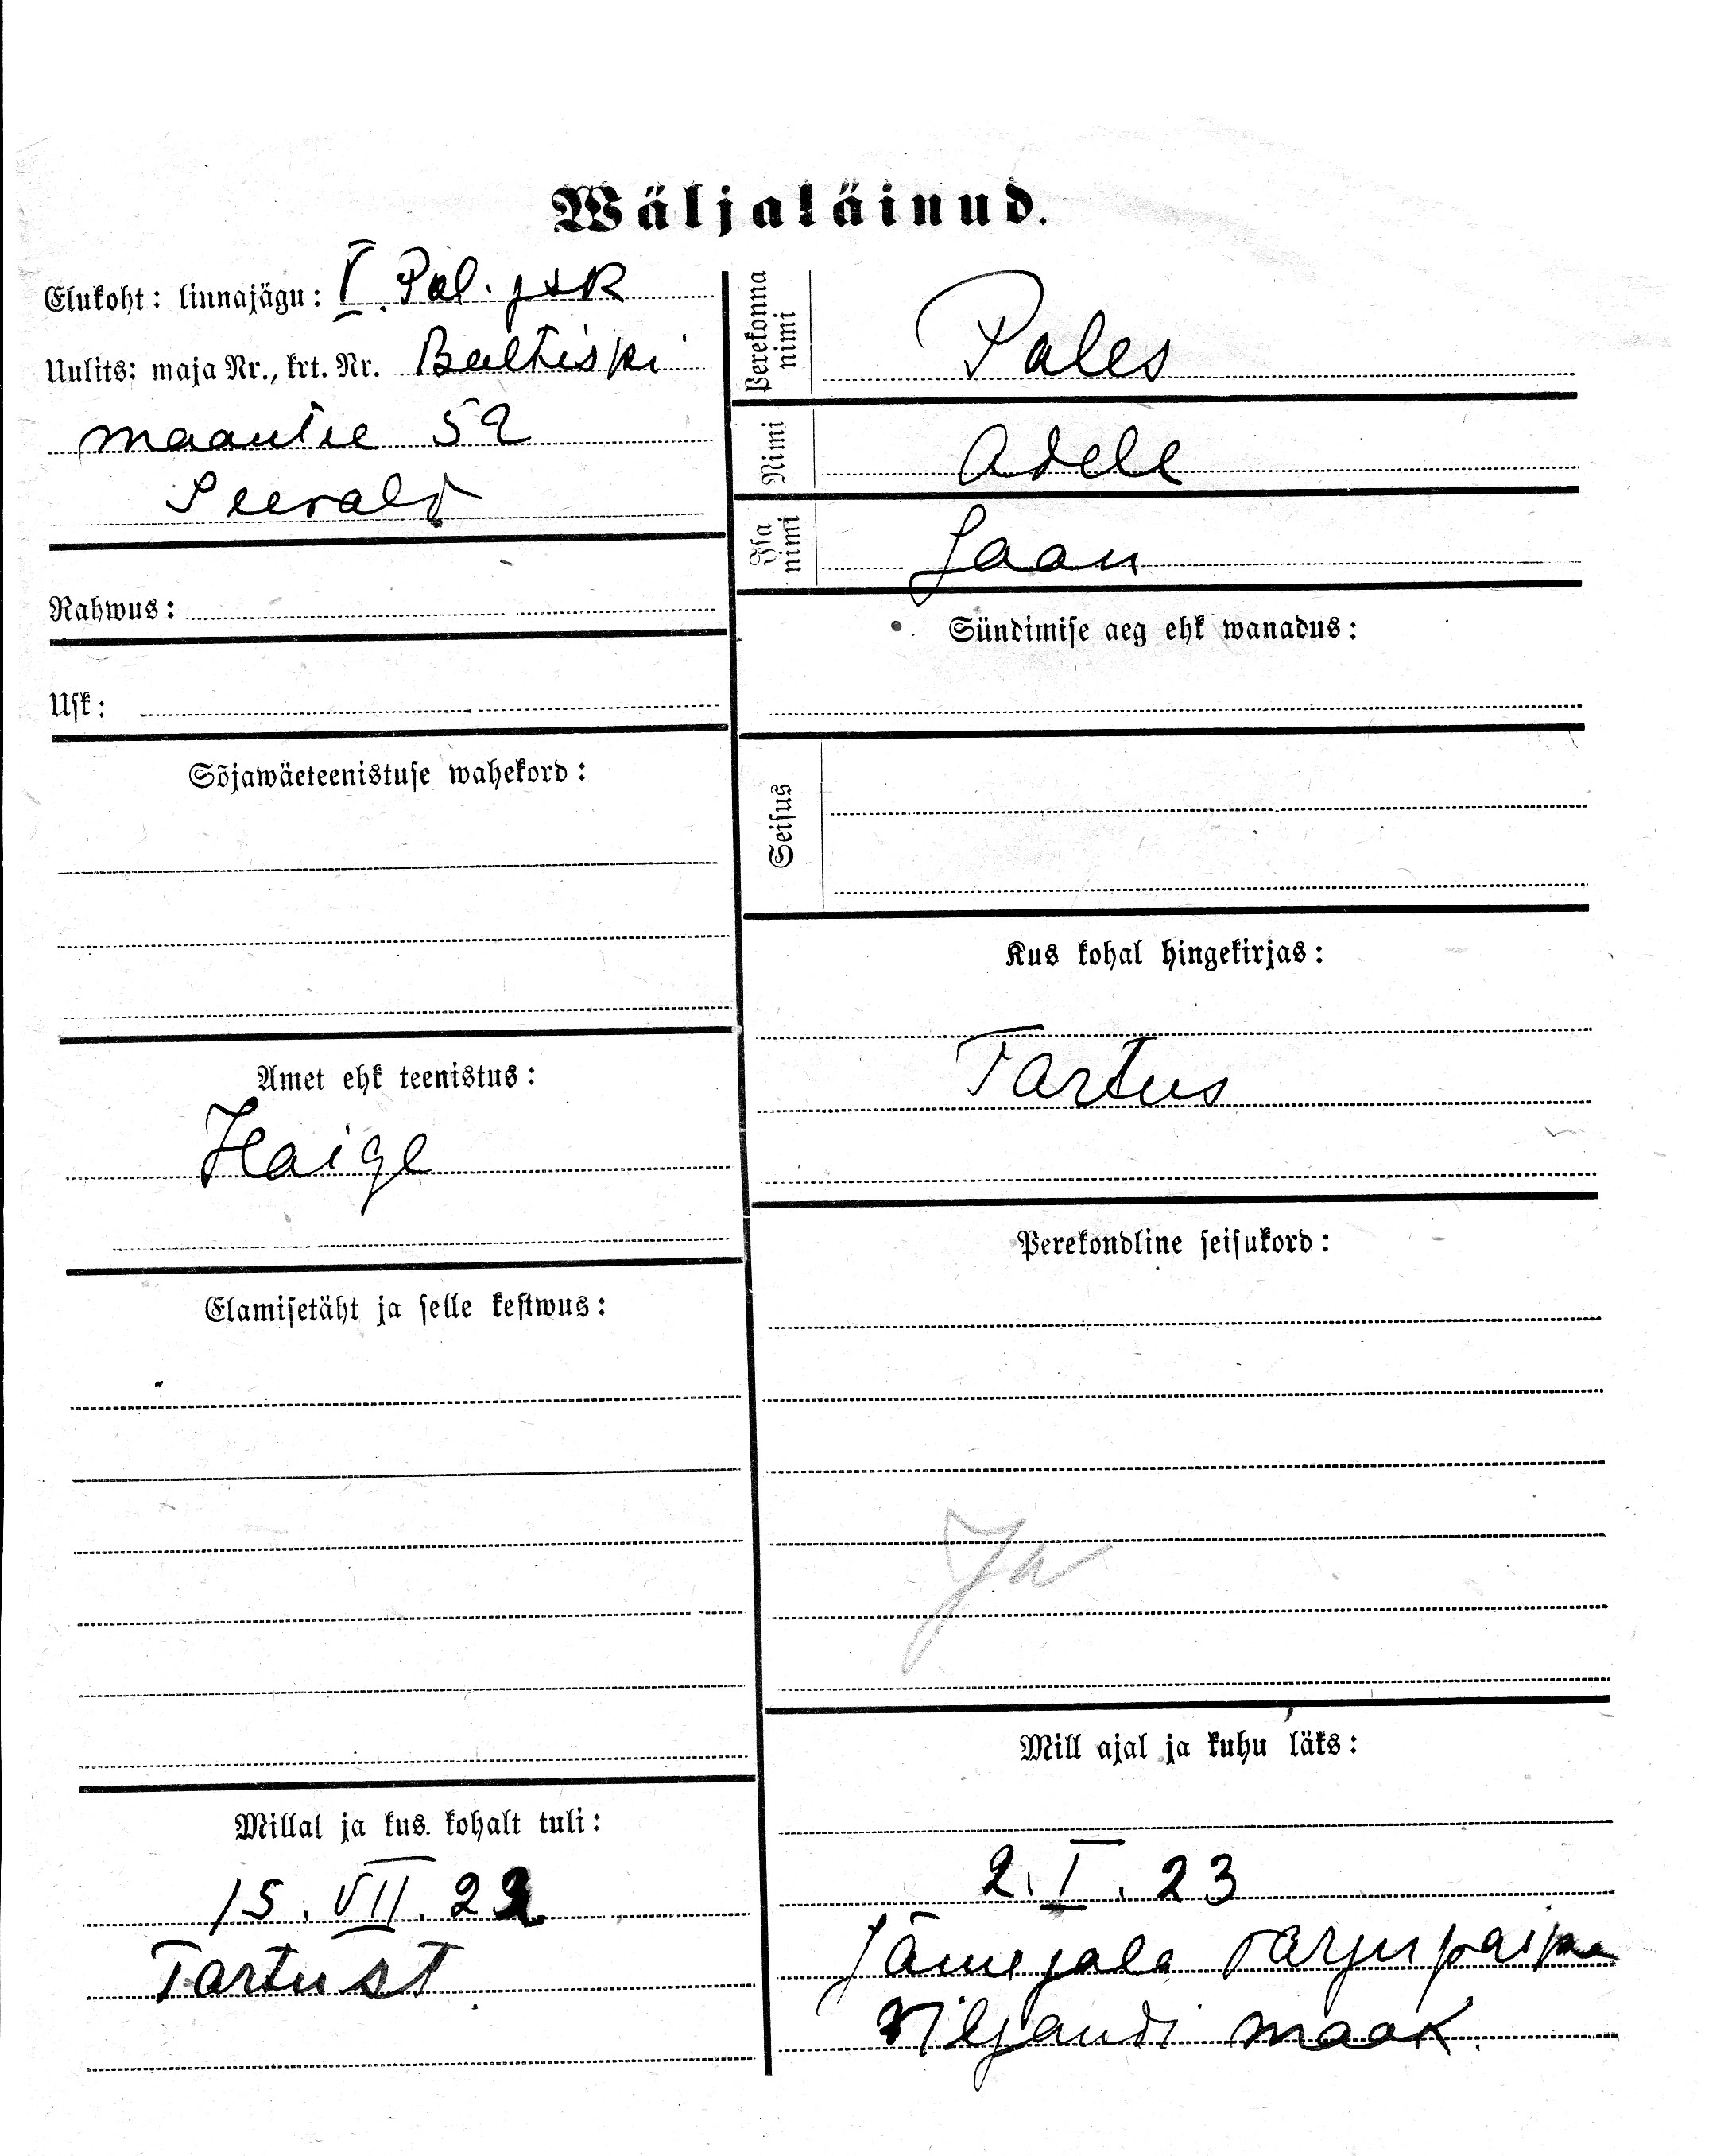 Wäljaläinud.
Elukoht: linnajägu: V. Pol. jsk
Uulits: maja Nr., krt. Nr. Baltiski
maantee 52
Seevald
Rahwus:
Usk:
Sõjawäeteenistuse wahekord:
Amet ehk teenistus:
Haige
Elamisetäht ja selle kestwus:
Millal ja kus kohalt tuli:
15. VII. 22
Tartust
Perekonna nimi Pales
Nimi Adele
Isa nimi Jaan
Sündimise aeg ehk wanadus:
Seisus
Kus kohal hingekirjas:
Tartus
Perekondline seisukord:
Ja
Mill ajal ja kuhu läks:
2. I. 23
Jämejala varjupaika
Viljandi maak.